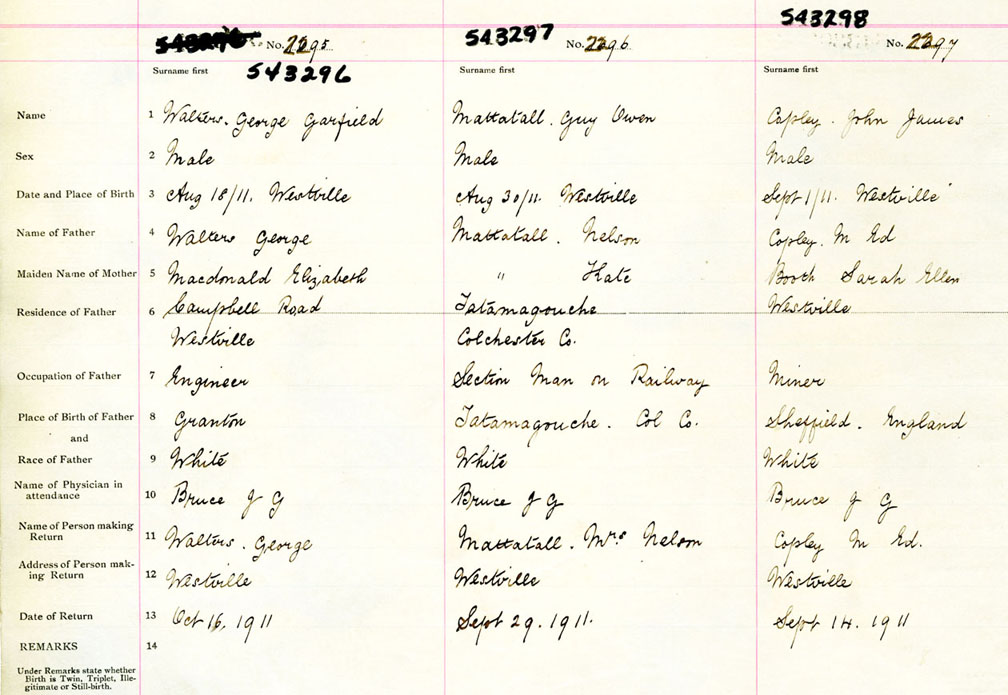 543296 No. 2295 543297 No. 2296 543298 No. 2297
Surname first 543296 Surname first Surname first
Name 1 Walters. George Garfield Mattatall. Guy Owen Copley. John James
Sex 2 Male Male Male
Date and Place of Birth 3 Aug 18/11. Westville Aug 30/11. Westville Sept 1/11. Westville
Name of Father 4 Walters George Mattatall. Nelson Copley. M Ed
Maiden Name of Mother 5 Macdonald Elizabeth " Kate Booth Sarah Ellen
Residence of Father 6 Campbell Road Tatamagouche Westville
Westville Colchester Co.
Occupation of Father 7 Engineer Section Man on Railway Miner
Place of Birth of Father 8 Granton Tatamagouche. Col Co. Sheffield. England
and
Race of Father 9 White White White
Name of Physician in
attendance 10 Bruce J G Bruce J G Bruce J G
Name of Person making
Return 11 Walters. George Mattatall. Mrs Nelson Copley M Ed.
Address of Person mak-
ing Return 12 Westville Westville Westville
Date of Return 13 Oct 16, 1911 Sept 29. 1911. Sept 14. 1911
REMARKS 14
Under Remarks state whether
Birth is Twin, Triplet, Ille-
gitimate or Still-birth.